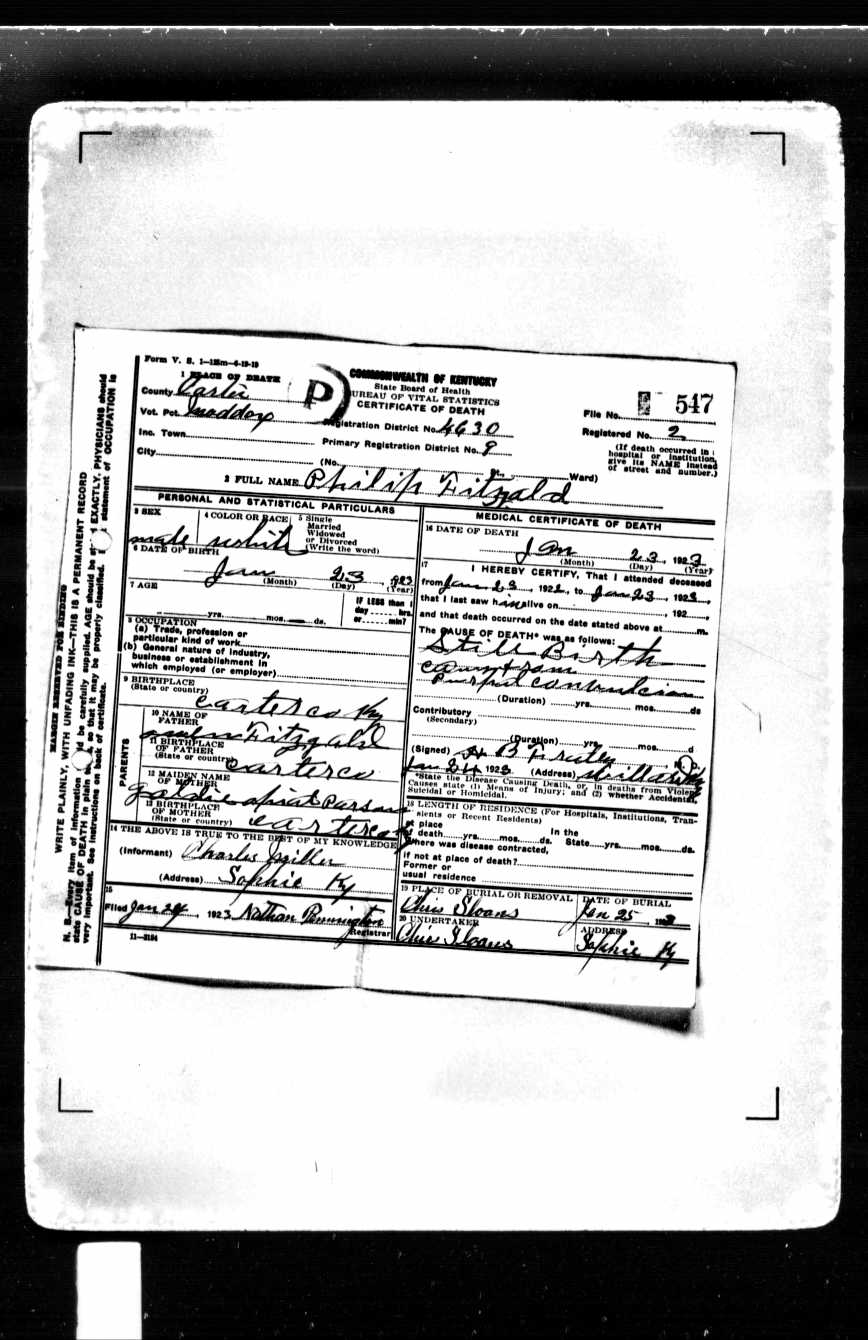 Form V. S. 1—125m—6-19-19
1 PLACE OF DEATH
County Carter
Vot. Pct. Maddox
Inc. Town
City
P
COMMONWEALTH OF KENTUCKY
State Board of Health
BUREAU OF VITAL STATISTICS
CERTIFICATE OF DEATH
Registration District No. 4630
Primary Registration District No. 9
(No. St., Ward)
File No. 547
Registered No. 2
(If death occurred in a
hospital or institution,
give its NAME instead
of street and number.)
2 FULL NAME Philip Fitzgald
PERSONAL AND STATISTICAL PARTICULARS
3 SEX
male
4 COLOR OR RACE
white
5 Single
Married
Widowed
or Divorced
(Write the word)
6 DATE OF BIRTH
Jan 23, 1923
(Month) (Day) (Year)
7 AGE
yrs. mos. ds.
IF LESS than 1
day hrs.
or min?
8 OCCUPATION
(a) Trade, profession or
particular kind of work
(b) General nature of industry,
business or establishment in
which employed (or employer)
9 BIRTHPLACE
(State or country)
Carter co Ky
PARENTS
10 NAME OF
FATHER
Fitzgald
11 BIRTHPLACE
OF FATHER
(State or country)
Carter co
12 MAIDEN NAME
OF MOTHER
Parsons
13 BIRTHPLACE
OF MOTHER
(State or country)
Carter co Ky
14 THE ABOVE IS TRUE TO THE BEST OF MY KNOWLEDGE
(Informant) Charles Miller
(Address) Sophie Ky
15
Filed Jan 24, 1923 Nathan Pennington
Registrar
11—3184
MEDICAL CERTIFICATE OF DEATH
16 DATE OF DEATH
Jan 23, 1923
(Month) (Day) (Year)
17
I HEREBY CERTIFY, That I attended deceased
from Jan 23, 192 , to Jan 23, 1923,
that I last saw him alive on , 192 ,
and that death occurred on the date stated above at m.
The CAUSE OF DEATH* was as follows:
Still Birth
from
(Duration) yrs. mos. ds
Contributory
(Secondary)
(Duration) yrs. mos. d
(Signed) H B
Jan 24 1923 (Address) Willard Ky
*State the Disease Causing Death, or, in deaths from Violent
Causes state (1) Means of Injury; and (2) whether Accidental,
Suicidal or Homicidal.
18 LENGTH OF RESIDENCE (For Hospitals, Institutions, Tran-
sients or Recent Residents)
At place In the
of death yrs. mos. ds. State yrs. mos. ds.
Where was disease contracted,
if not at place of death?
Former or
usual residence
19 PLACE OF BURIAL OR REMOVAL
Chris Sloans
DATE OF BURIAL
Jan 25 1923
20 UNDERTAKER
Chris Sloans
ADDRESS
Sophie Ky
MARGIN RESERVED FOR BINDING
WRITE PLAINLY, WITH UNFADING INK—THIS IS A PERMANENT RECORD
N. B.—Every item of information should be carefully supplied. AGE should be stated EXACTLY. PHYSICIANS should
state CAUSE OF DEATH in plain terms, so that it may be properly classified. Exact statement of OCCUPATION is
very important. See instructions on back of certificate.